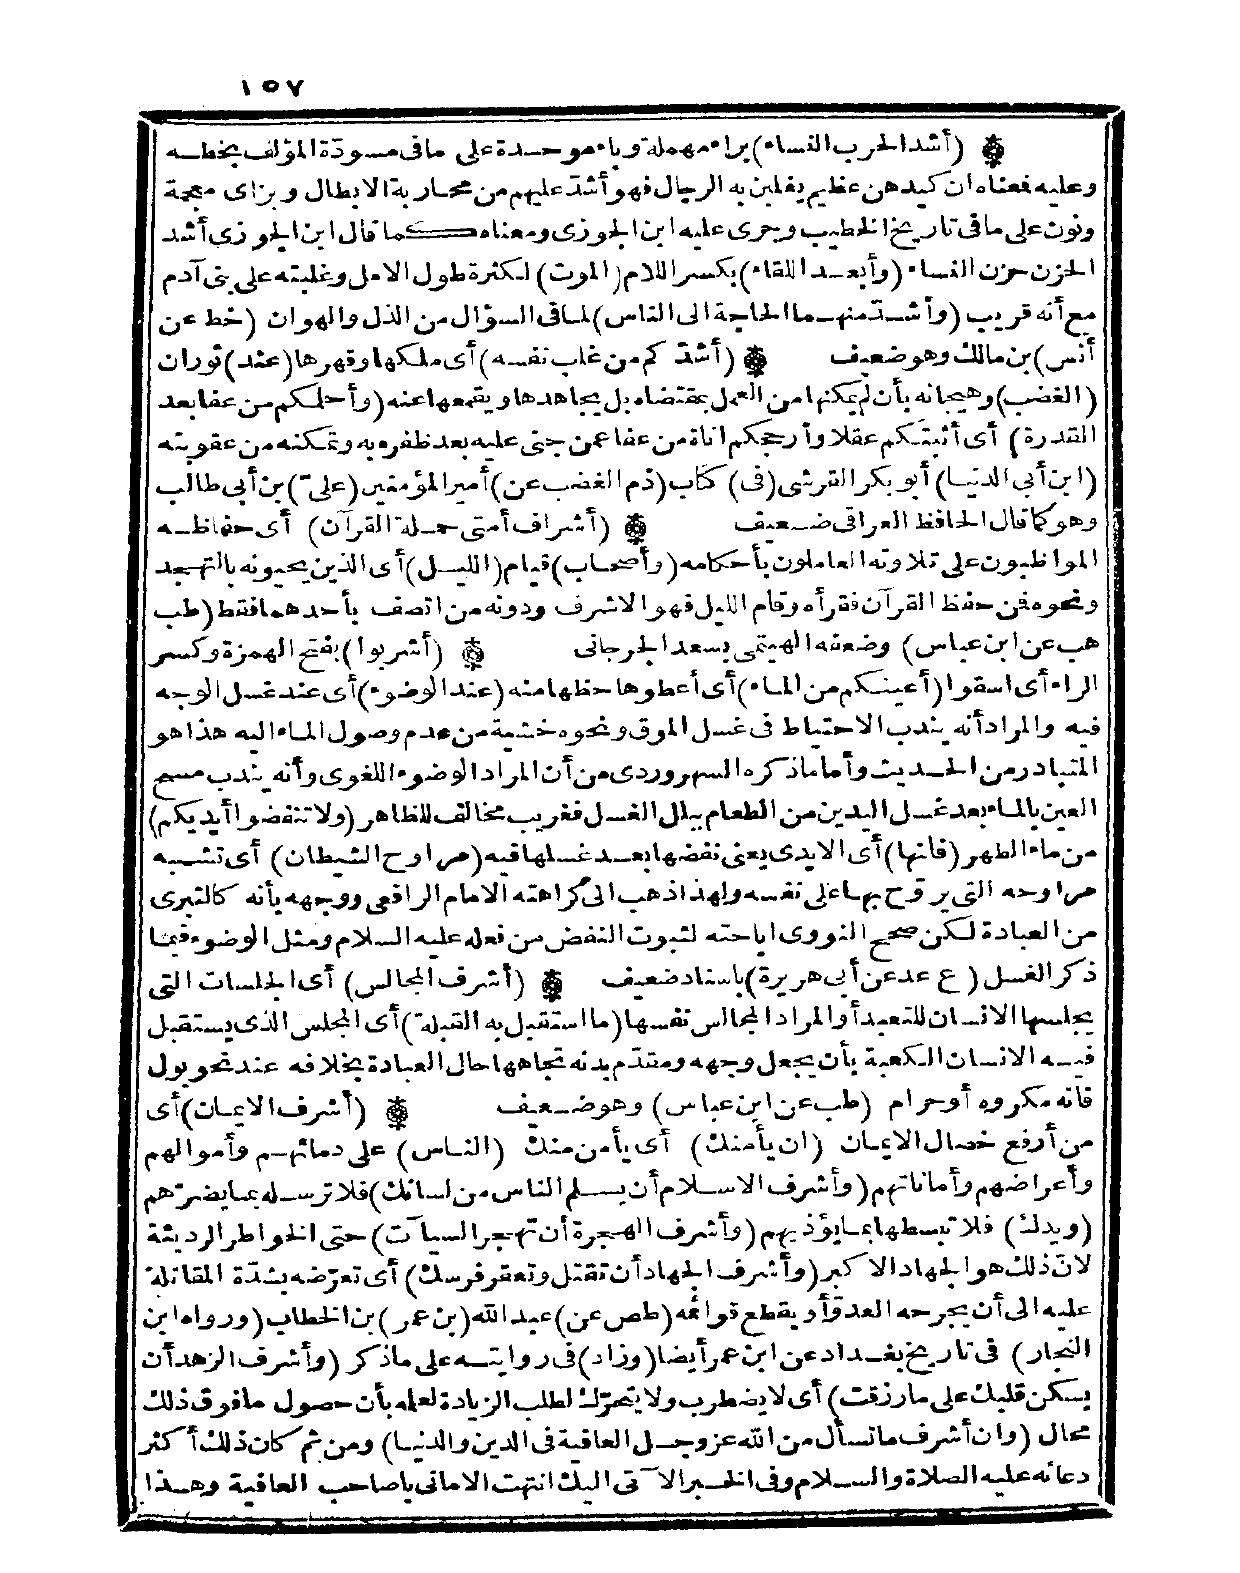 ١٥٧
(أشد الحرب النساء) براء مهملة وباء موحدة على ما فى مسودة المؤلف بخطه
وعليه فمعناه ان كيدهن عظيم يغلبن به الرجال فهو أشد عليهم من محاربة الابطال وبزاى معجمة
ونون على ما فى تاريخ الخطيب وجرى عليه ابن الجوزى ومعناه كما قال ابن الجوزى أشد
الحزن حزن النساء (وأبعد اللقاء) بكسر اللام (الموت) لكثرة طول الامل وغلبته على بنى آدم
مع أنه قريب (وأشد منهما الحاجة الى الناس) لما فى السؤال من الذل والهوان (خط عن
أنس) بن مالك وهو ضعيف (أشدّ كم من غلب نفسه) أى ملكها وقهرها (عند) ثوران
(الغضب) وهيجانه بأن لم يمكنها من العمل بمقتضاه بل يجاهدها ويقمعها عنه (وأحلمكم من عفا بعد
القدرة) أى أثبتكم عقلا وأرجحكم اناة من عفا عمن جنى عليه بعد ظفره به وتمكنه من عقوبته
(ابن أبى الدنيا) أبو بكر القرشى (فى) كتاب (ذم الغضب عن) أمير المؤمنين (علىّ) بن أبى طالب
وهو كما قال الحافظ العراقى ضعيف (أشراف أمتى حملة القرآن) أى حفاظه
المواظبون على تلاوته العاملون بأحكامه (وأصحاب) قيام (الليل) أى الذين يحيونه بالتهجد
ونحوه فمن حفظ القرآن فقرأه وقام الليل فهو الاشرف ودونه من اتصف بأحدهما فقط (طب
هب عن ابن عباس) وضعفه الهيتمى بسعد الجرجانى (أشربوا) بفتح الهمزة وكسر
الراء أى اسقوا (أعينكم من الماء) أى أعطوها حظها منه (عند الوضوء) أى عند غسل الوجه
فيه والمراد أنه يندب الاحتياط فى غسل الموق ونحوه خشية من عدم وصول الماء اليه هذا هو
المتبادر من الحديث وأما ما ذكره السهروردى من أن المراد الوضوء اللغوى وأنه يندب مسح
العين بالماء بعد غسل اليدين من الطعام ببلل الغسل فغريب مخالف للظاهر (ولا تنفضوا أيديكم)
من ماء الطهر (فانها) أى الايدى يعنى نفضها بعد غسلها فيه (مراوح الشيطان) أى تشبه
مراوحه التى يروّح بها على نفسه ولهذا ذهب الى كراهته الامام الرافعى ووجهه بأنه كالتبرى
من العبادة لكن صحح النووى اباحته لثبوت النفض من فعله عليه السلام ومثل الوضوء فيما
ذكر الغسل (ع عد عن أبى هريرة) باسناد ضعيف (أشرف المجالس) أى الجلسات التى
يجلسها الانسان للتعبد أو المراد المجالس نفسها (ما استقبل به القبلة) أى المجلس الذى يستقبل
فيه الانسان الكعبة بأن يجعل وجهه ومقدّم بدنه تجاهها حال العبادة بخلافه عند نحو بول
فانه مكروه أو حرام (طب عن ابن عباس) وهو ضعيف (أشرف الايمان) أى
من أرفع خصال الايمان (ان يأمنك) أى يأمن منك (الناس) على دمائهم وأموالهم
وأعراضهم وأماناتهم (وأشرف الاسلام أن يسلم الناس من لسانك) فلا ترسله بما يضرّهم
(ويدك) فلا تبسطها بما يؤذيهم (وأشرف الهجرة أن تهجر السيآت) حتى الخواطر الرديئة
لانّ ذلك هو الجهاد الاكبر (وأشرف الجهاد أن تقتل وتعقر فرسك) أى تعرّضه بشدّة المقاتلة
عليه الى أن يجرحه العدوّ أو يقطع قوائمه (طص عن) عبد الله (بن عمر) بن الخطاب (ورواه ابن
النجار) فى تاريخ بغداد عن ابن عمر أيضا (وزاد) فى روايته على ما ذكر (وأشرف الزهد أن
يسكن قلبك على ما رزقت) أى لا يضطرب ولا يتحرّك لطلب الزيادة لعلمه بأن حصول ما فوق ذلك
محال (وان أشرف ما تسأل من الله عز وجل العافية فى الدين والدنيا) ومن ثم كان ذلك أكثر
دعائه عليه الصلاة والسلام وفى الخبر الآتى اليك انتهت الامانى يا صاحب العافية وهذا